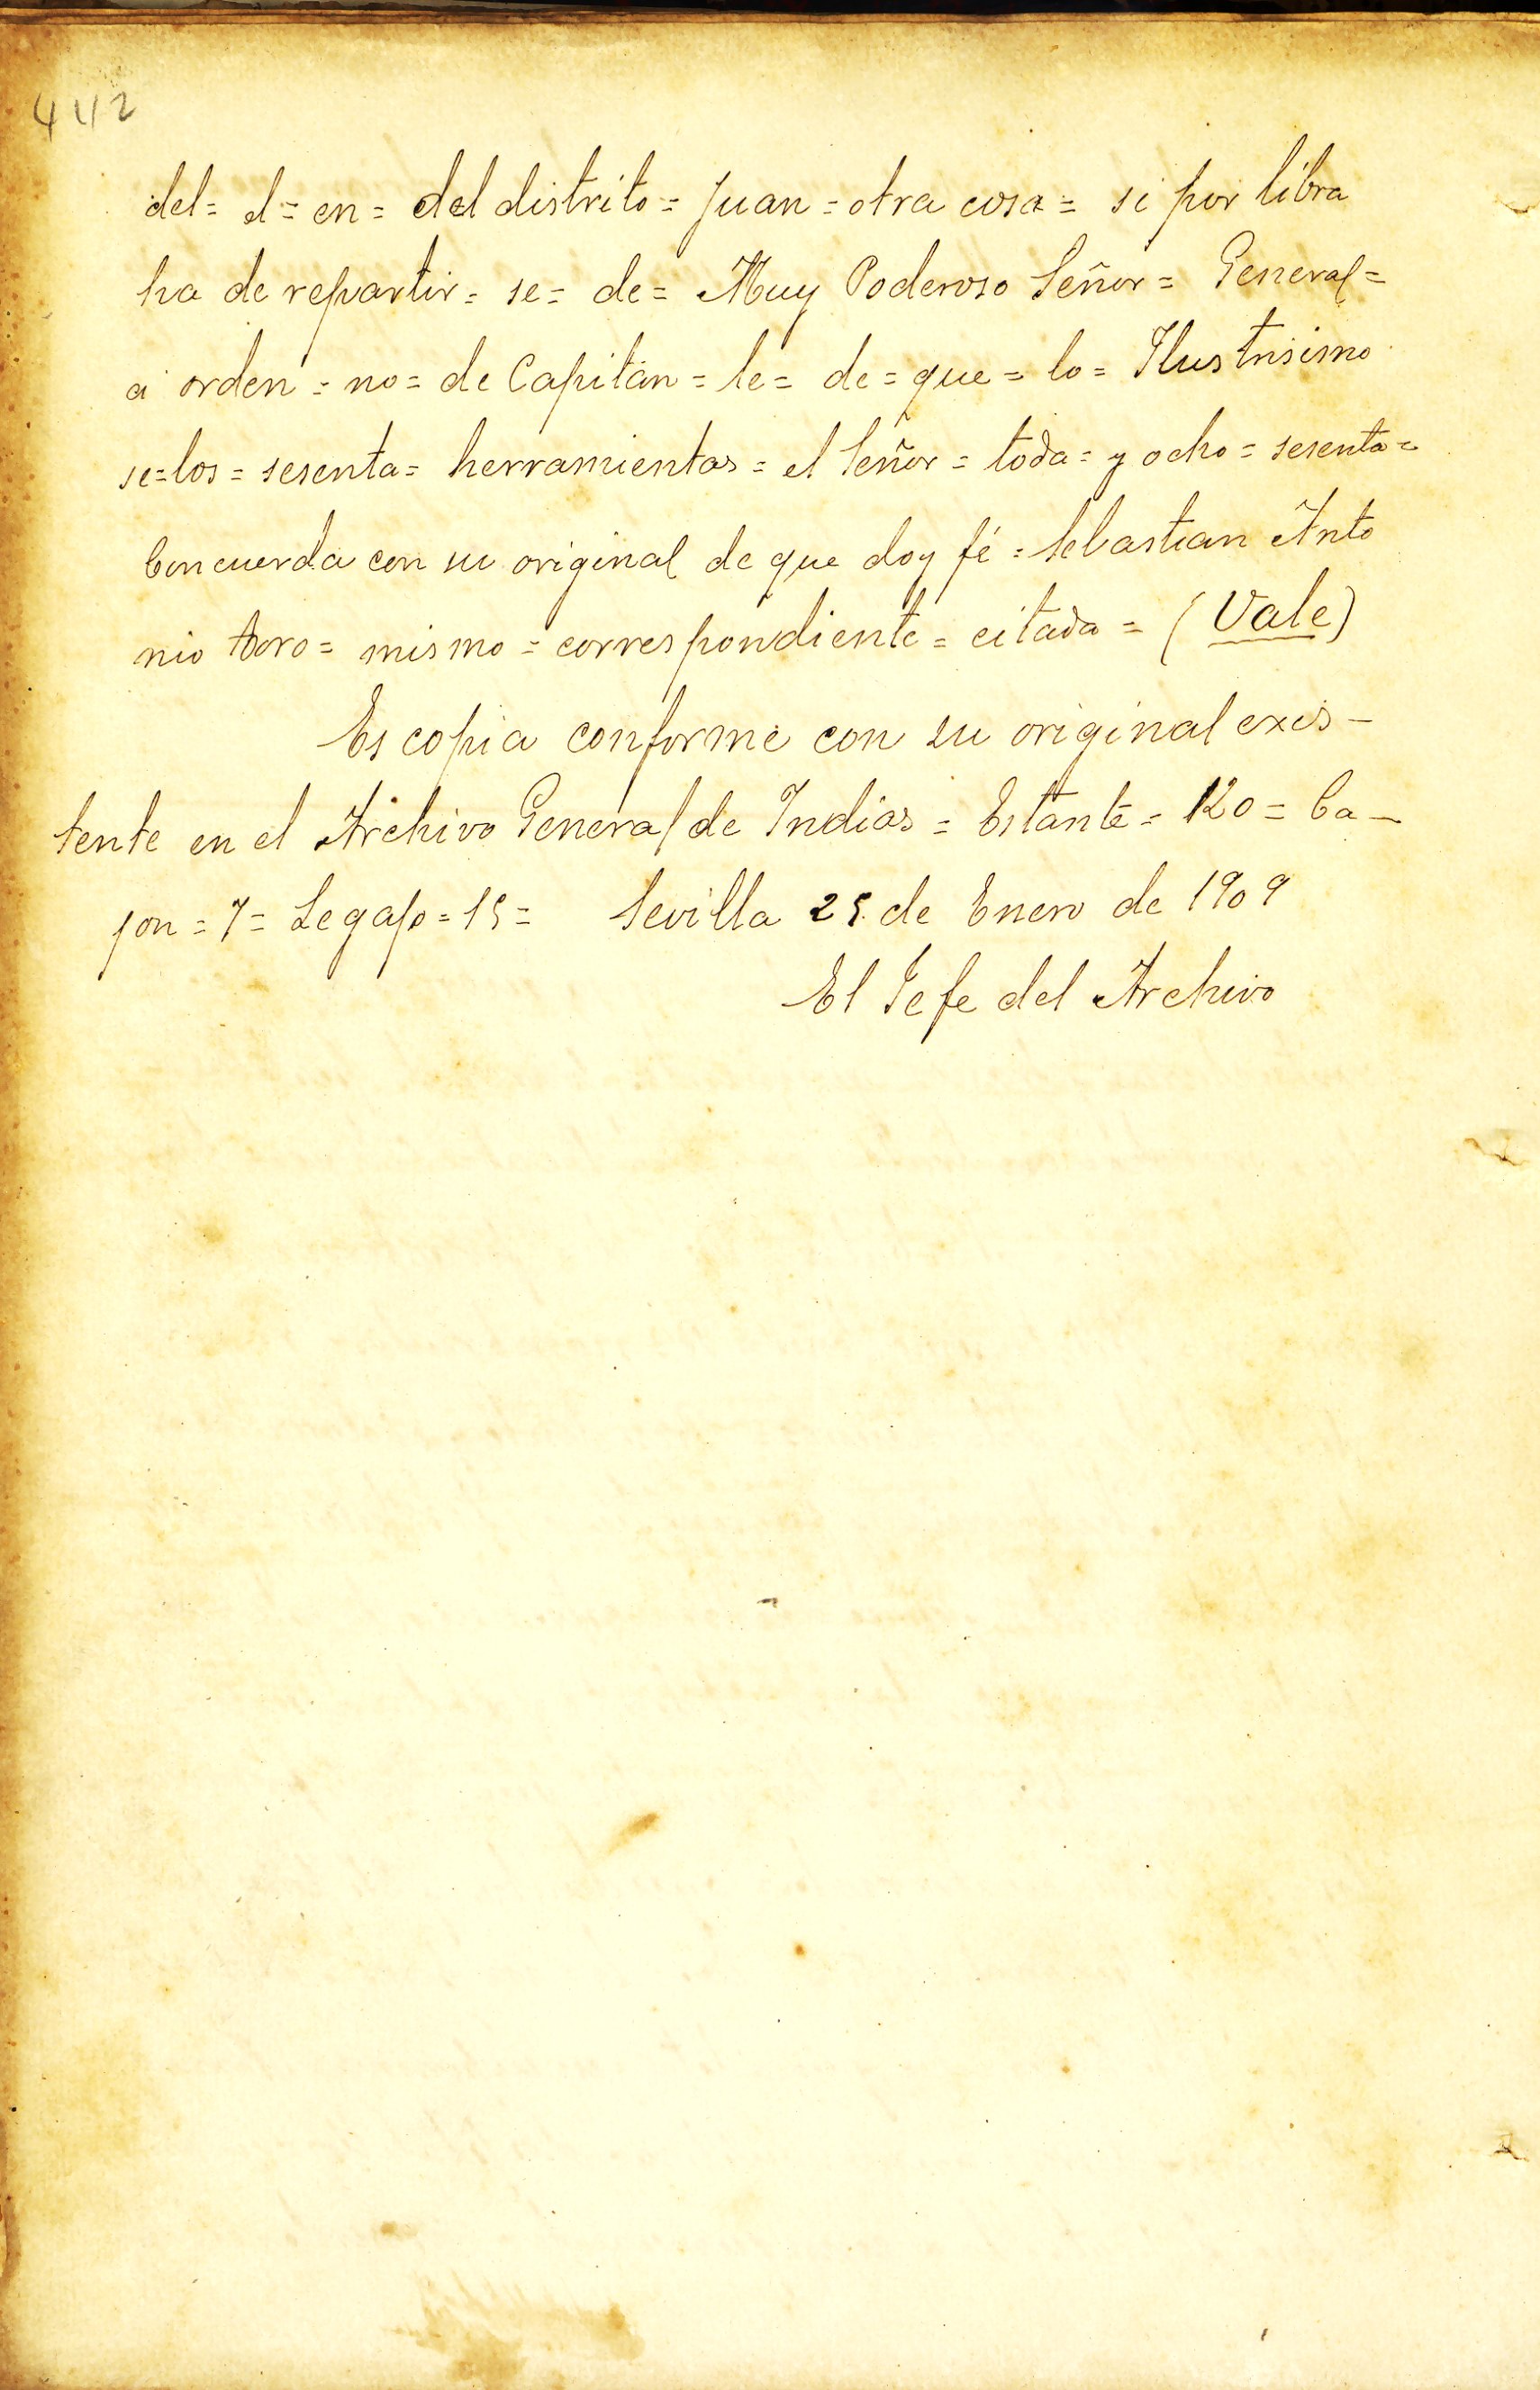 442
del = el = en = del distrito = Juan = otra cosa = si por libra
ha de repartir = se = de = Muy Poderoso Señor = General =
a orden = no = de Capitán = le = de = que = lo = Ilustrisimo
se = los = sesenta = herramientas = el Señor = toda = y ocho = sesenta =
Concuerda con su original de que doy fé = Sebastian Anto
nio Toro = mismo = correspondiente = citada = (Vale)
Es copia conforme con su original exis-
tente en el Archivo General de Indias = Estante = 120 = Ca-
jon = 7 = Legajo = 15 = Sevilla 25 de Enero de 1909
El Jefe del Archivo